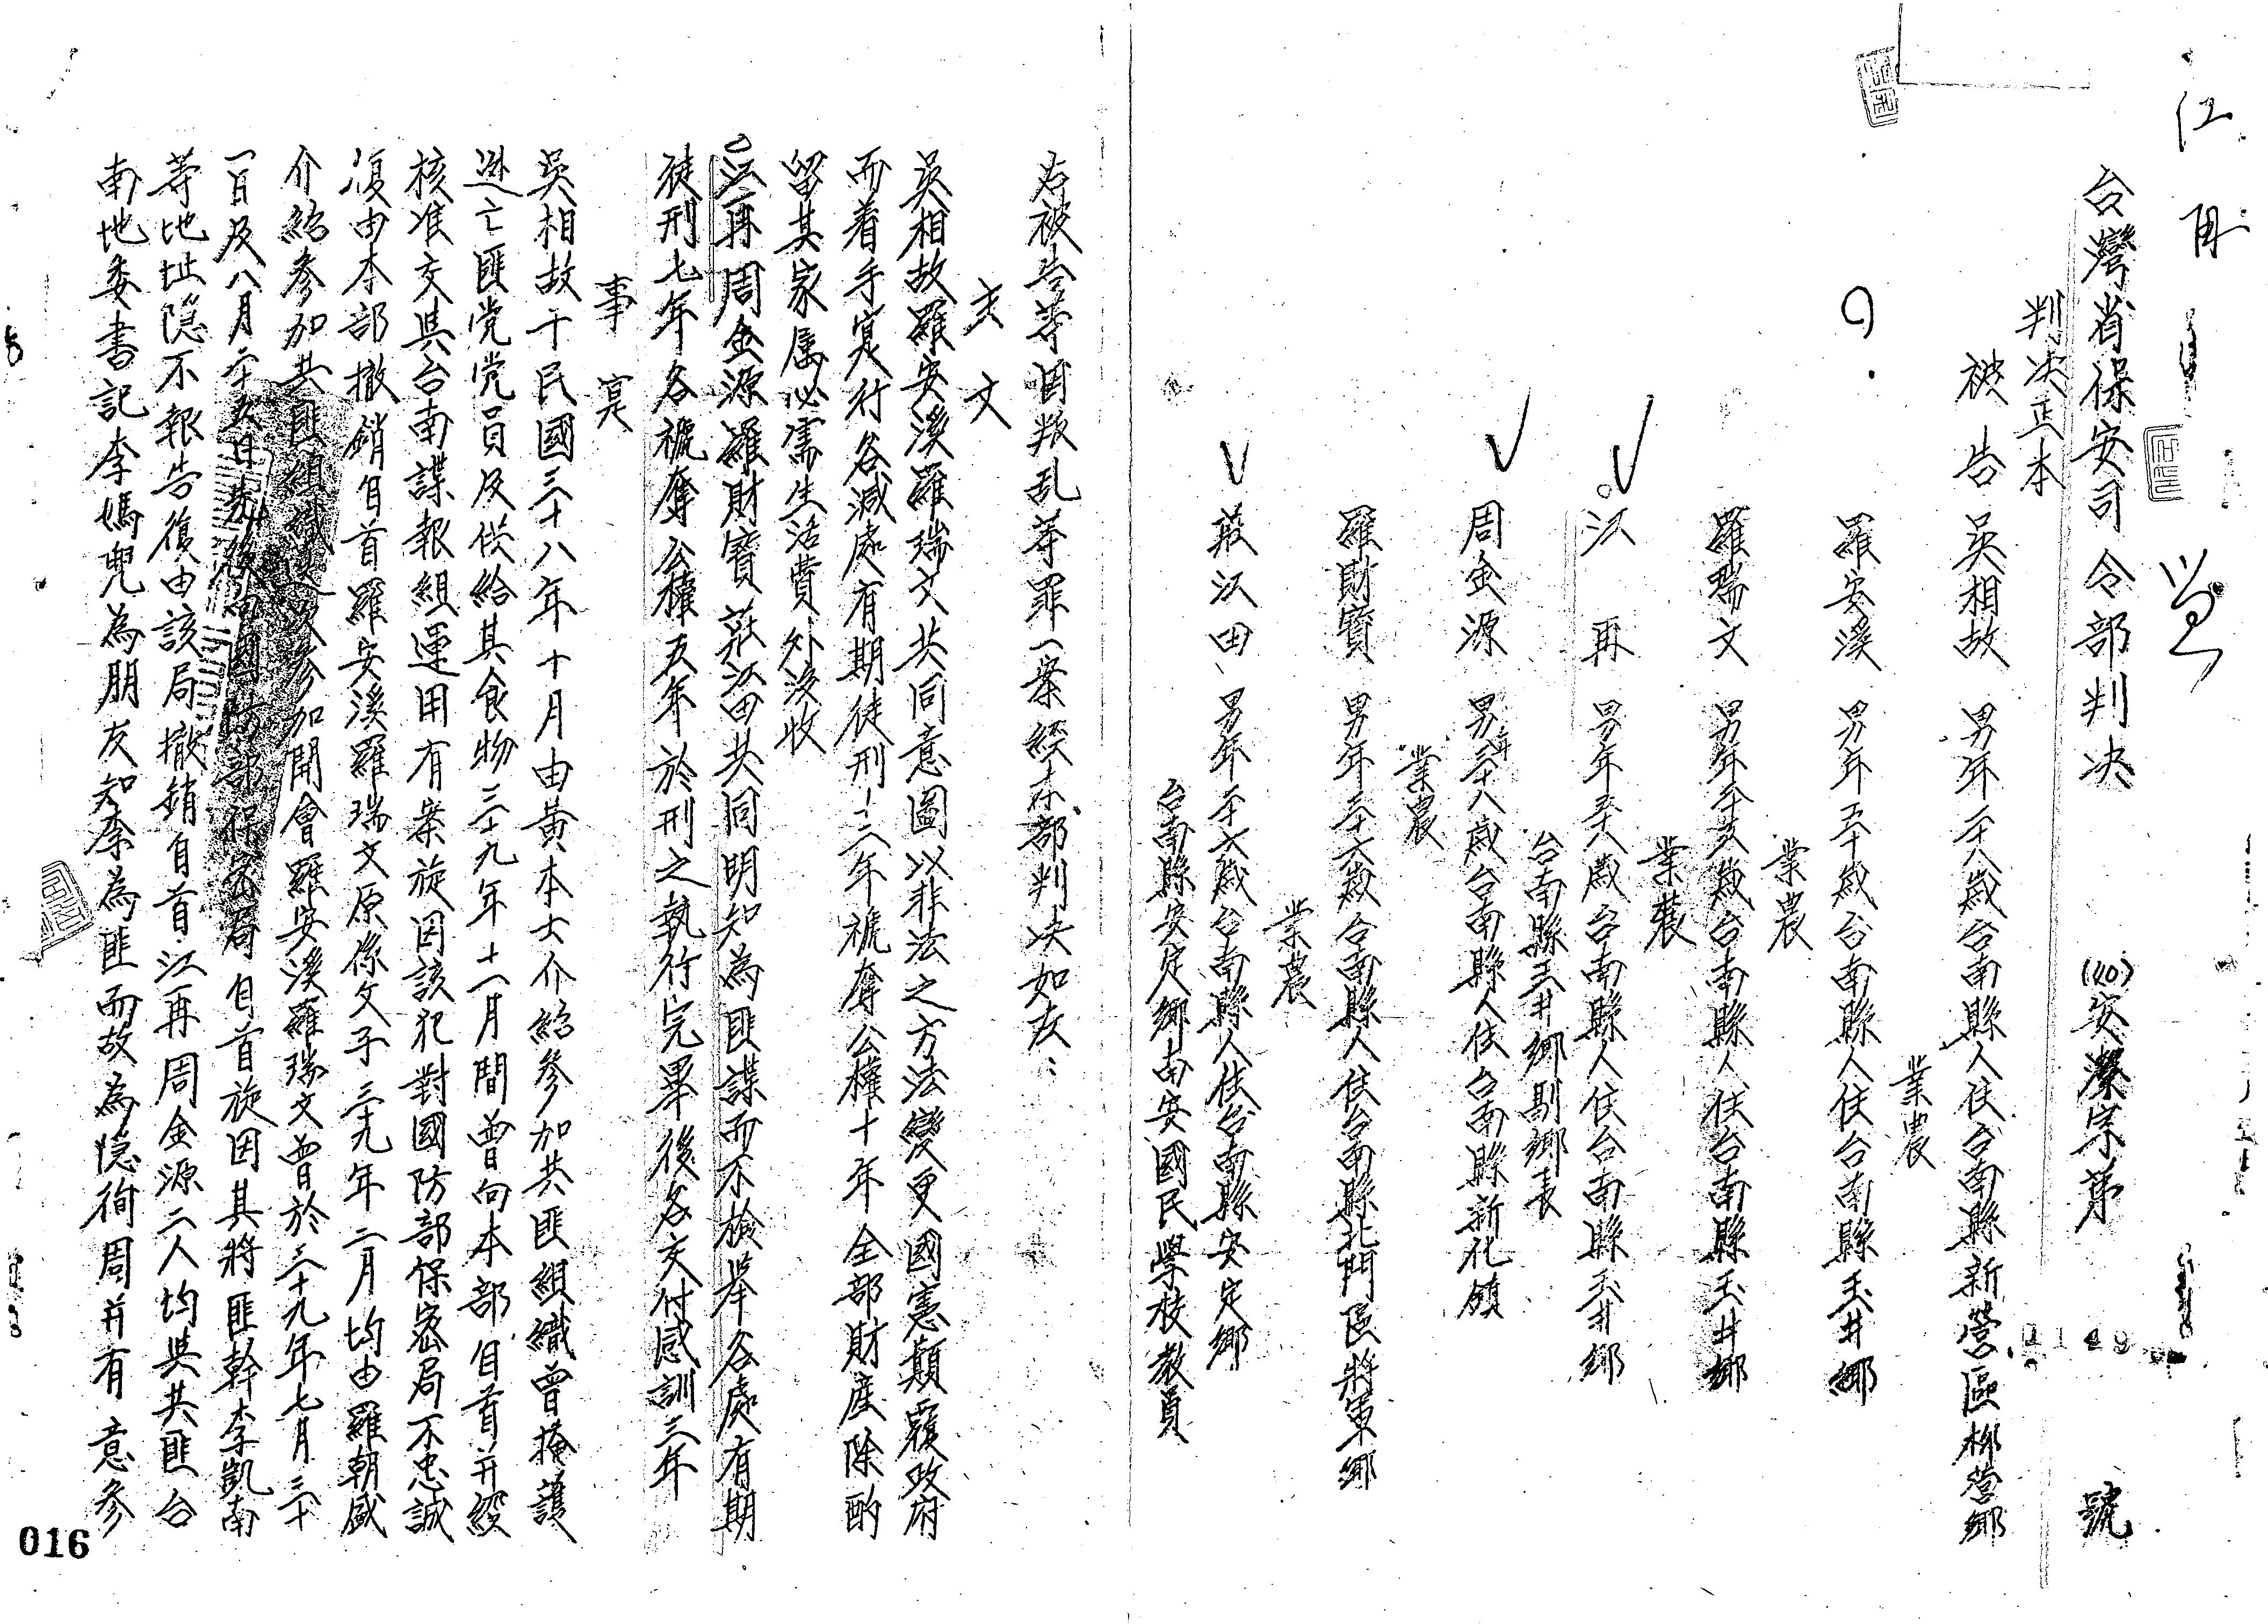 江再
台灣省保安司令部判决 (40)安潔字第 1149 號
判决正本
被告 吳相故 男年二十八歲台南縣人住台南縣新營區柳營鄉
業農
羅安溪 男年五十歲台南縣人住台南縣玉井鄉
業農
羅瑞文 男年二十歲台南縣人住台南縣玉井鄉
業農
江再 男年三十八歲台南縣人住台南縣玉井鄉
台南縣玉井鄉副鄉長
周金源 男年三十八歲台南縣人住台南縣新化鎮
業農
羅財寶 男年二十六歲台南縣人住台南縣北門區將軍鄉
業農
莊江田 男年二十六歲台南縣人住台南縣安定鄉
台南縣安定鄉南安國民學校教員
右被告等因叛乱等罪一案經本部判决如左：
主文
吳相故羅安溪羅瑞文共同意圖以非法之方法變更國憲顛覆政府
而着手實行各減處有期徒刑十二年褫奪公權十年全部財產除酌
留其家屬必需生活費外沒收
江再周金源羅財寶莊江田共同明知為匪諜而不檢舉各處有期
徒刑七年各褫奪公權五年於刑之執行完畢後各交付感訓三年
事實
吳相故于民國三十八年十月由黃本士介紹參加共匪組織曾掩護
逃亡匪党党員及供給其食物三十九年十一月間曾向本部自首并經
核准交其台南諜報組運用有案旋因該犯對國防部保密局不忠誠
復由本部撤銷自首羅安溪羅瑞文原係父子三十九年二月均由羅朝盛
介紹參加共匪組織迭次參加開會羅安溪羅瑞文曾於三十九年七月三十
一日及八月二十五日先後向國防部保密局自首旋因其將匪幹李凱南
等地址隐不報告復由該局撤銷自首江再周金源二人均與共匪台
南地委書記李媽兜為朋友知李為匪而故為隐徇周并有意參
016